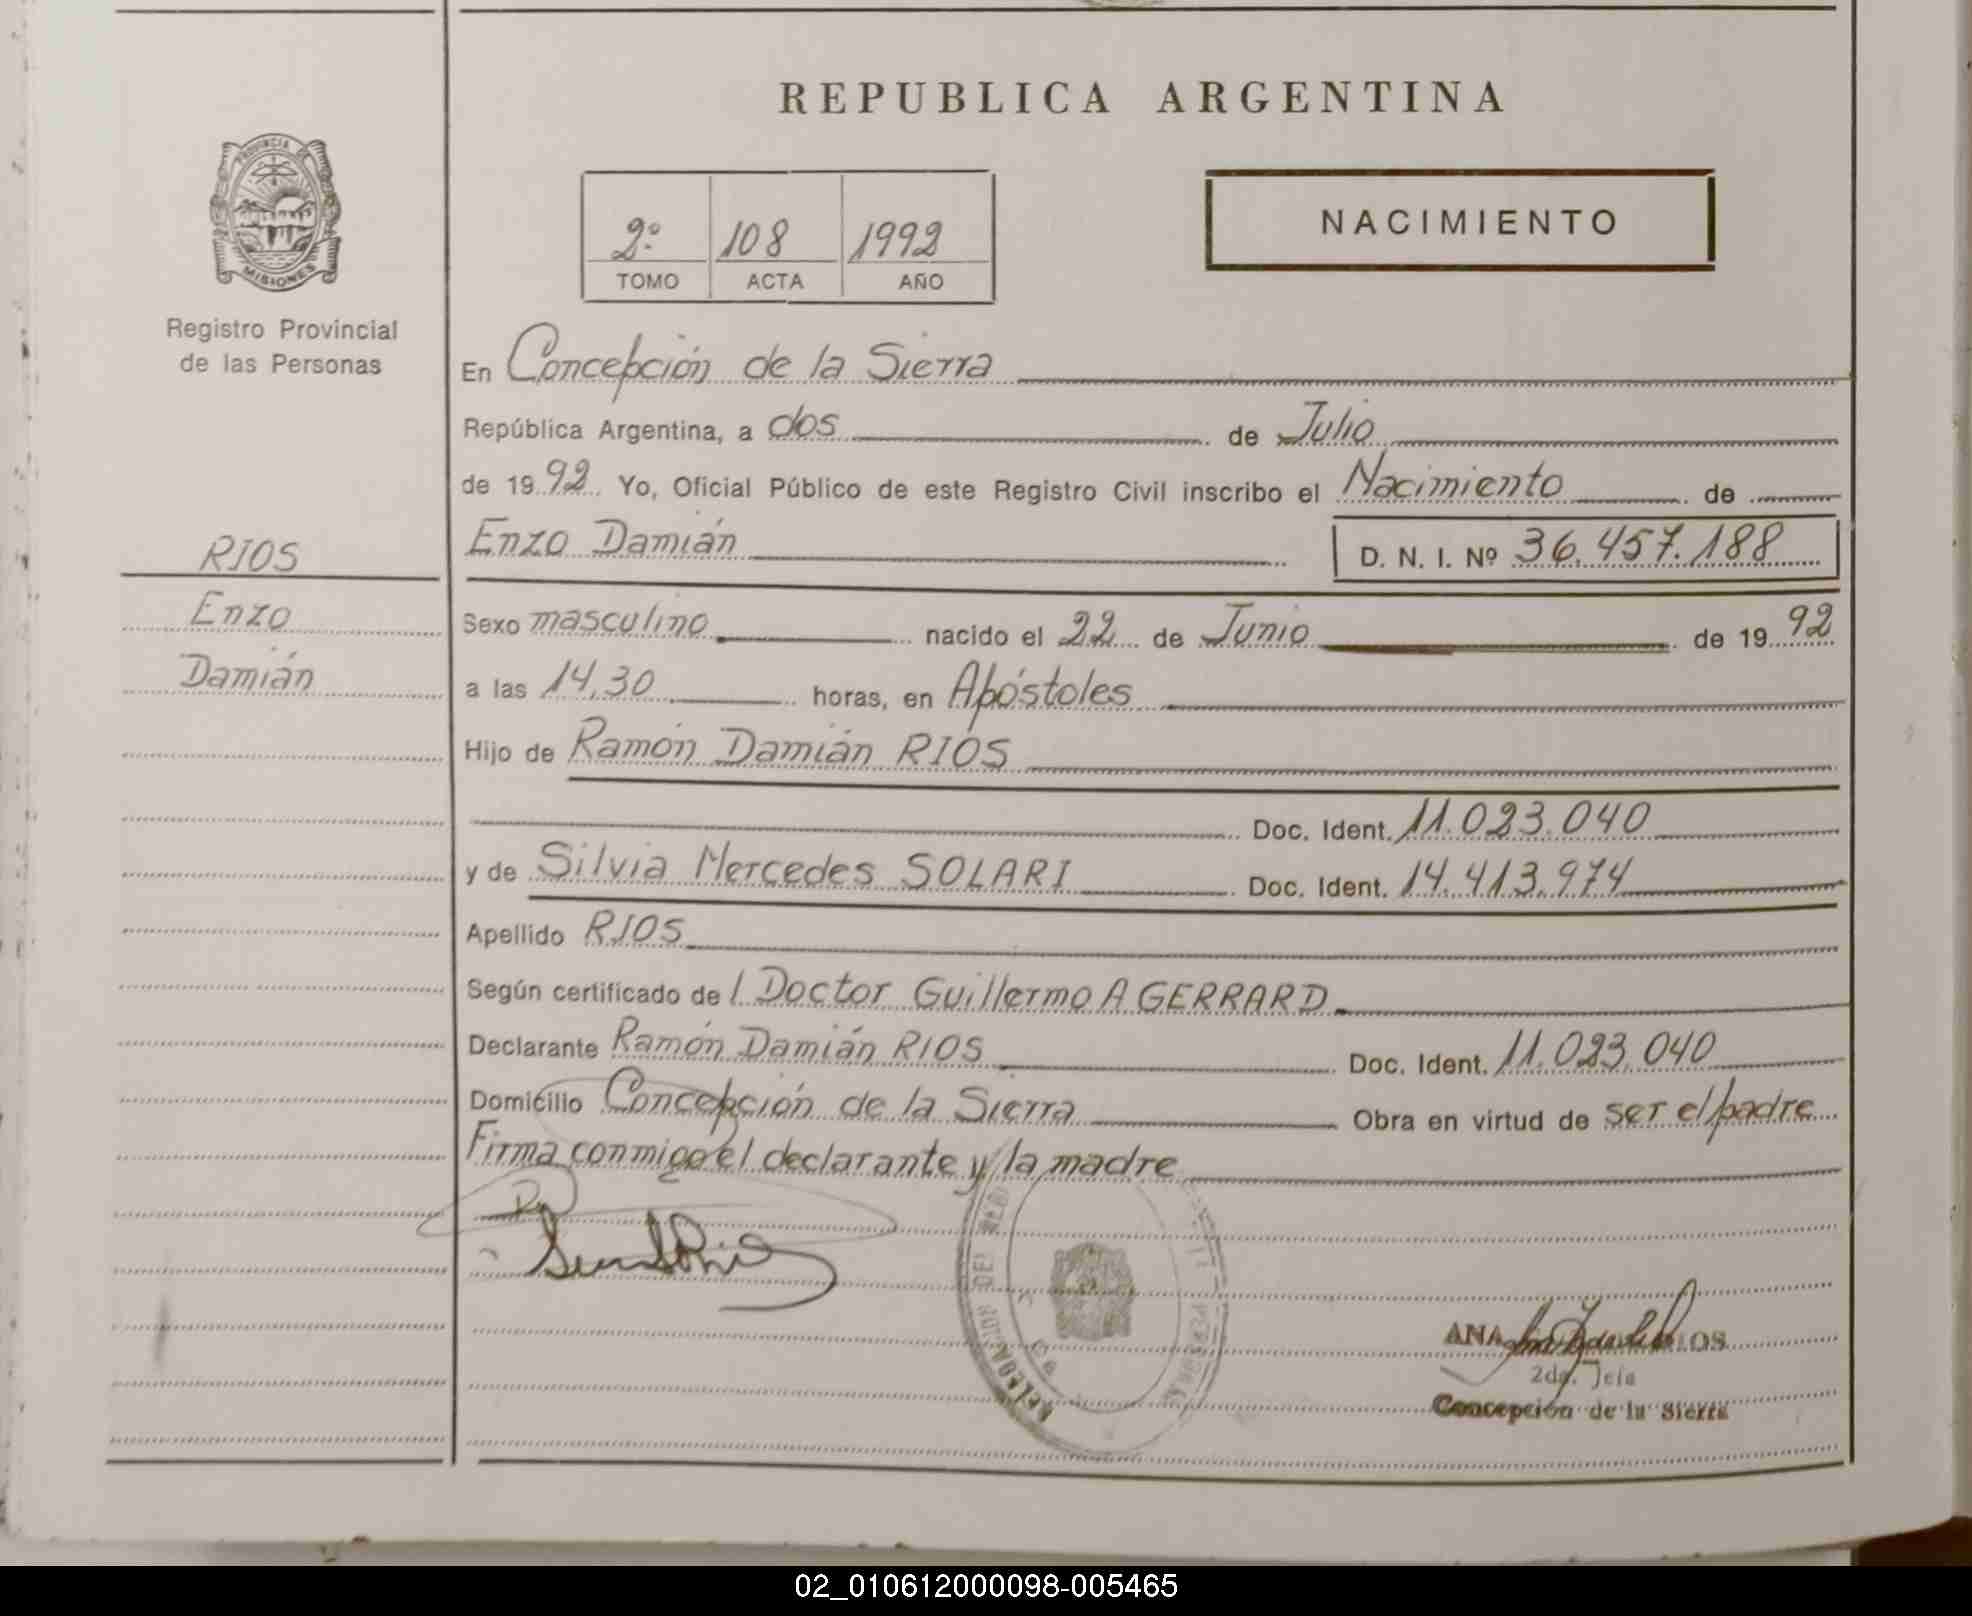 REPUBLICA ARGENTINA
PROVINCIA DE
MISIONES
Registro Provincial
de las Personas
2º 108 1992
TOMO ACTA AÑO
NACIMIENTO
En Concepción de la Sierra
República Argentina, a dos de Julio
de 1992 Yo, Oficial Público de este Registro Civil inscribo el Nacimiento de
RIOS
Enzo
Damián
Enzo Damián D. N. I. Nº 36.457.188
Sexo masculino nacido el 22 de Junio de 1992
a las 14,30 horas, en Apóstoles
Hijo de Ramón Damián RIOS
Doc. Ident. 11.023.040
y de Silvia Mercedes SOLARI Doc. Ident. 14.413.974
Apellido RIOS
Según certificado del Doctor Guillermo A GERRARD
Declarante Ramón Damián RIOS Doc. Ident. 11.023.040
Domicilio Concepción de la Sierra Obra en virtud de ser el padre
Firma conmigo el declarante y la madre
ANA RIOS
2da. Jefa
Concepción de la Sierra
02_010612000098-005465